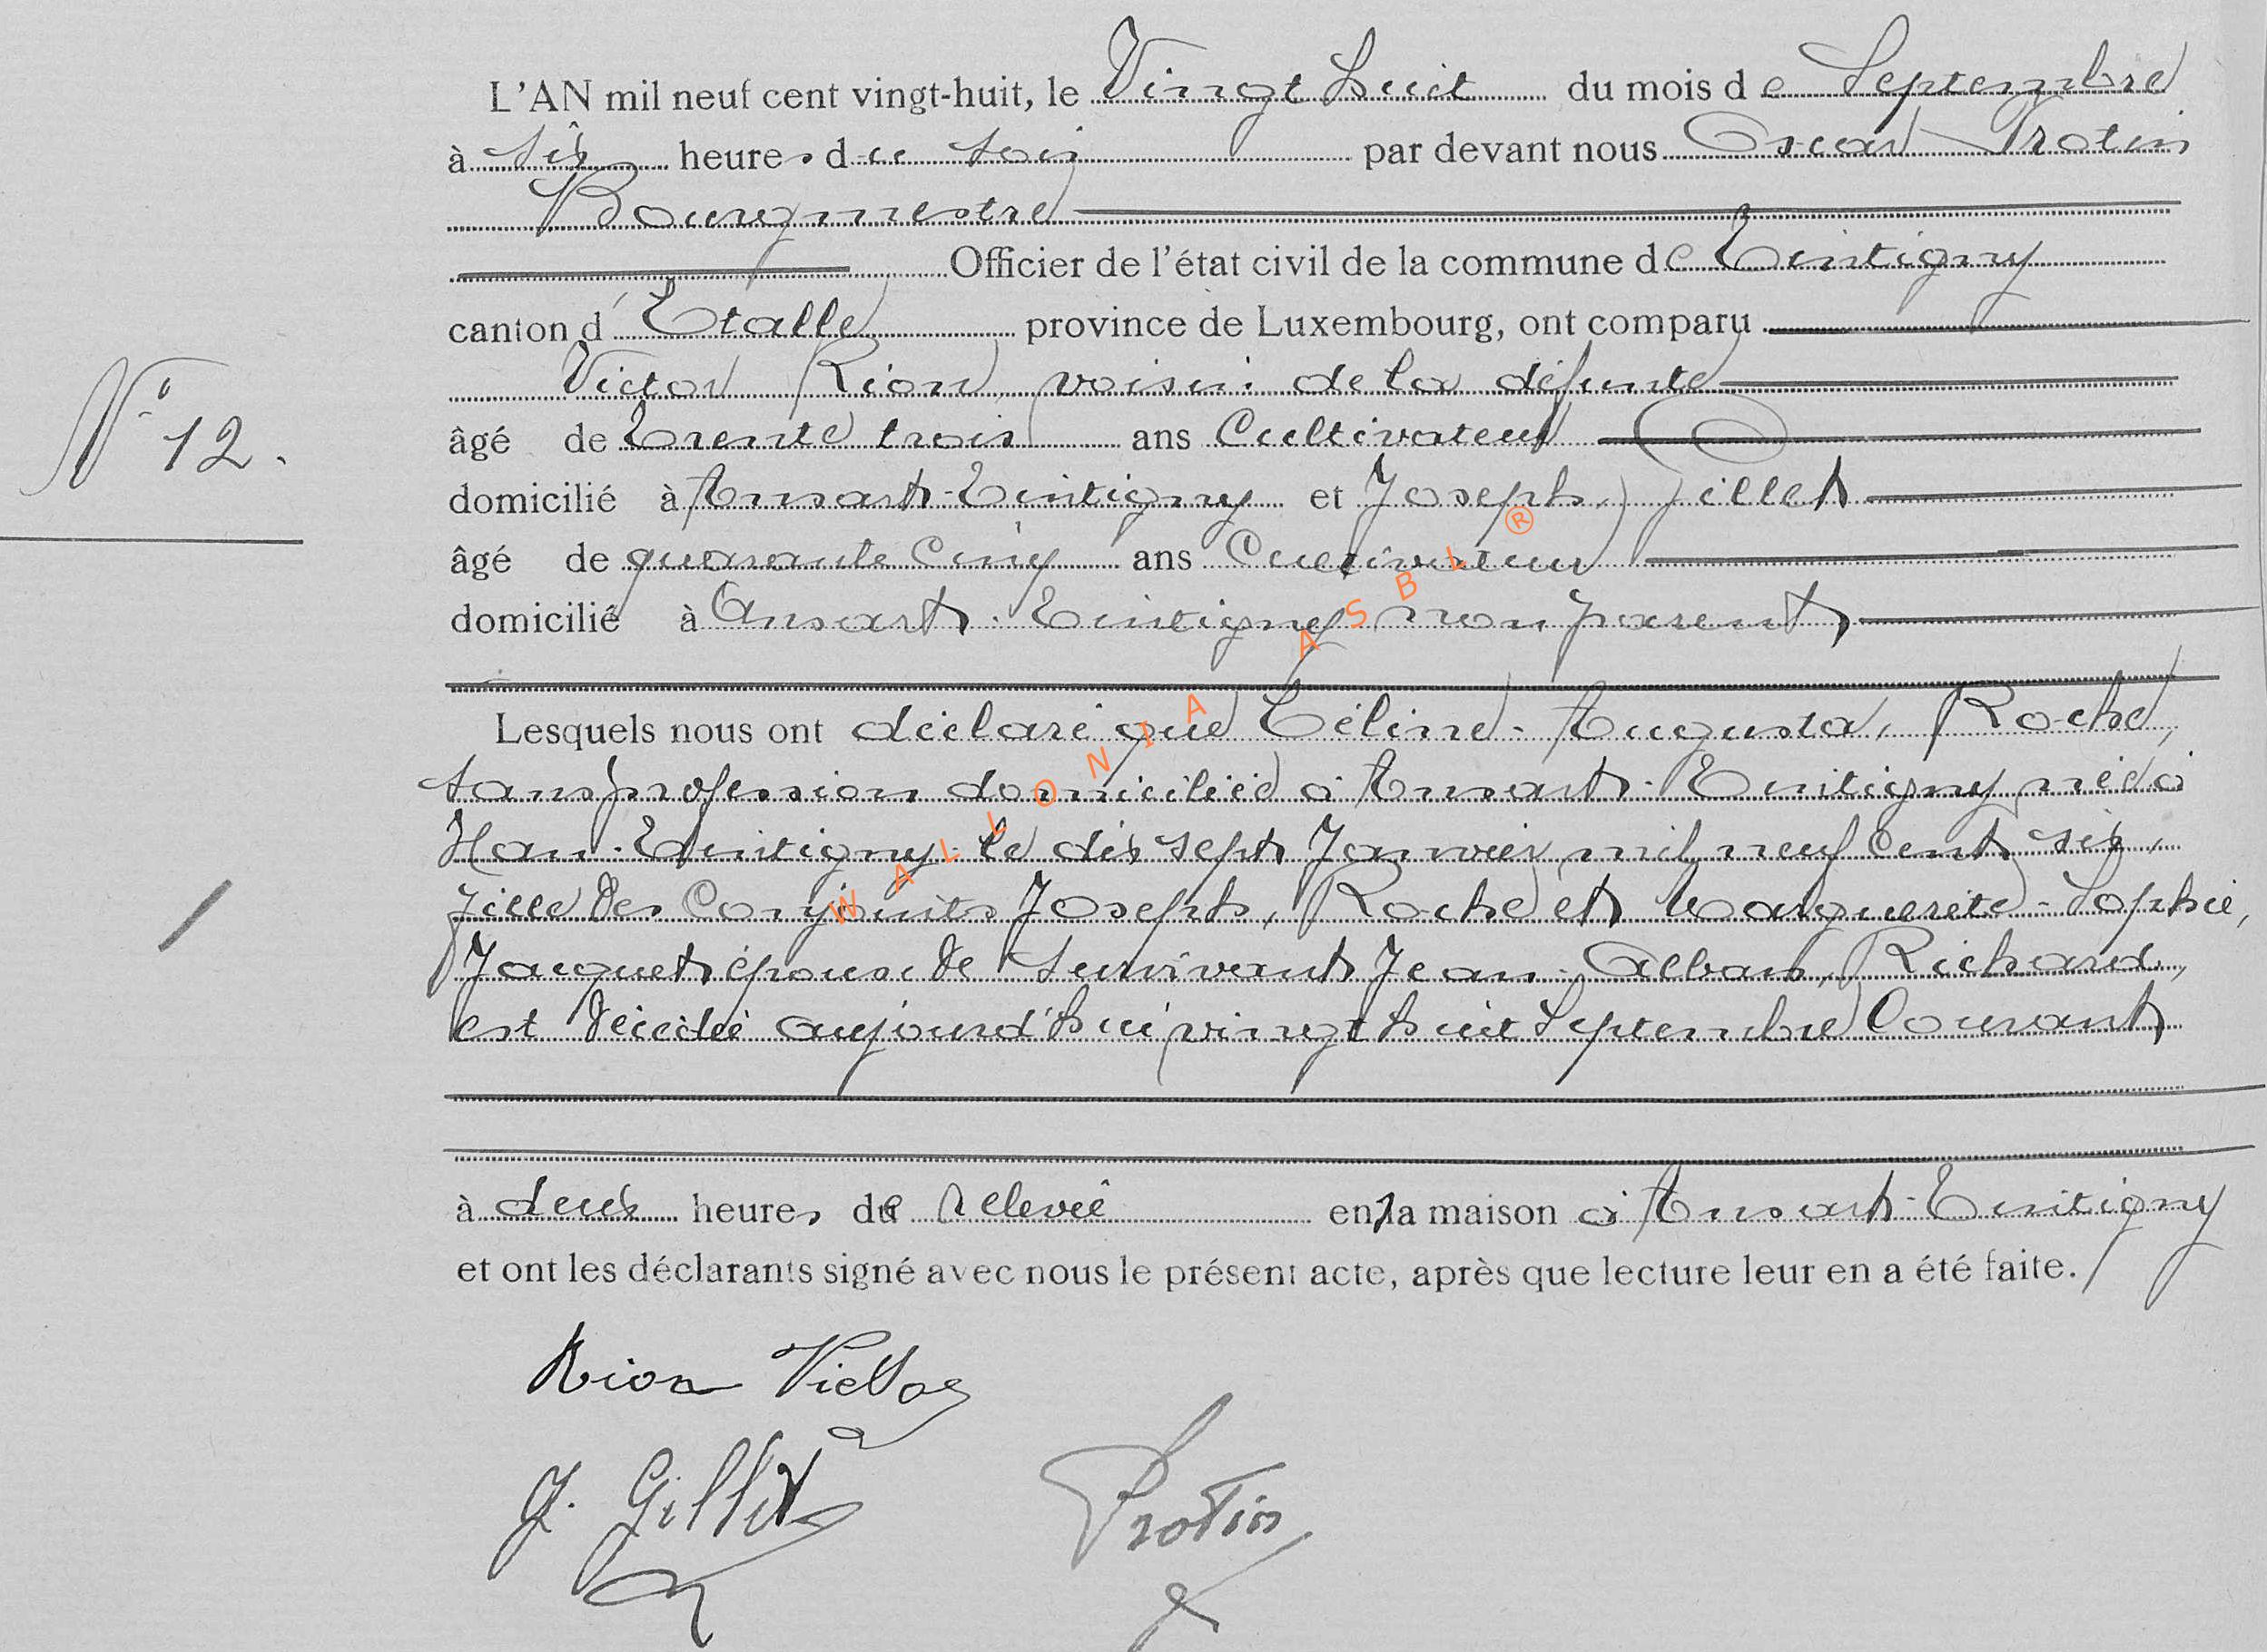 L'AN mil neuf cent vingt-huit, le Vingt huit du mois de Septembre
à six heures du soir par devant nous Oscar Protin
Bourgmestre
Officier de l'état civil de la commune de Tintigny
canton d'Etalle province de Luxembourg, ont comparu
Victor Rion, voisin de la défunte
N° 12.
âgé de Trente trois ans Cultivateur
domicilié à Ansart-Tintigny et Joseph, Gillet
âgé de quarante Cinq ans Cultivateur
domicilié à Ansart-Tintigny non parent
Lesquels nous ont déclaré que Céline-Augusta, Roche,
sans profession domiciliée à Ansart-Tintigny née à
Han-Tintigny le dix sept Janvier mil neuf Cent six,
fille des Conjoints Joseph, Roche et Marguerite-Sophie,
Jacquet épouse de survivant Jean-Alban, Richard,
est décédée aujourd'hui vingt huit Septembre Courant
à deux heures de relevée en sa maison à Ansart-Tintigny
et ont les déclarants signé avec nous le présent acte, après que lecture leur en a été faite.
Rion Victor
J. Gillet
Protin
WALLONIA ASBL ®